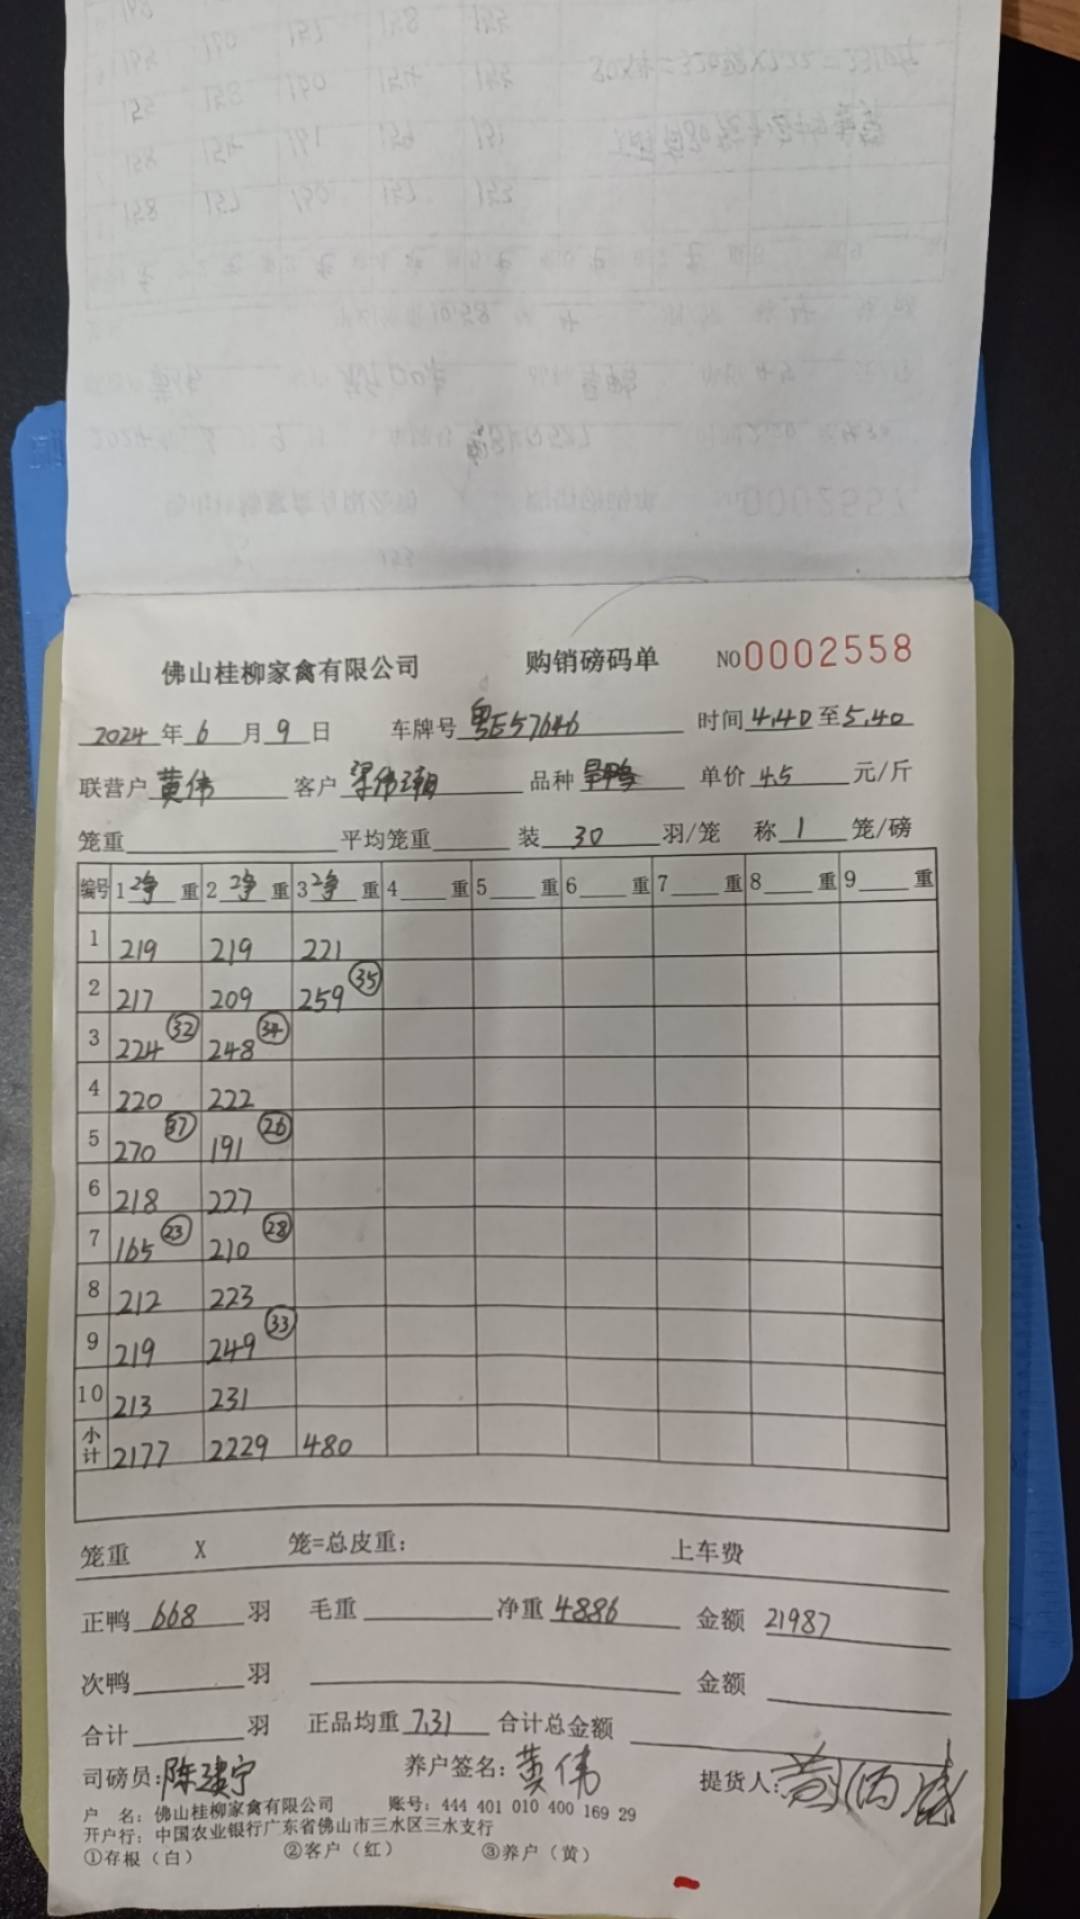 佛山桂柳家禽有限公司 购销磅码单 NO 0002558
2024年6月9日 车牌号 粤E57646 时间 4.40 至 5.40
联营户 黄伟 客户 梁伟潮 品种 旱鸭 单价 4.5 元/斤
笼重 平均笼重 装 30 羽/笼 称 1 笼/磅
编号 1 净 重 2 净 重 3 净 重 4 重 5 重 6 重 7 重 8 重 9 重
1 219 219 221
2 217 209 259 ㉟
3 224 ㉜ 248 ㉞
4 220 222
5 270 ㊲ 191 ㉖
6 218 227
7 165 ㉓ 210 ㉘
8 212 223
9 219 249 ㉝
10 213 231
小计 2177 2229 480
笼重 X 笼=总皮重: 上车费
正鸭 668 羽 毛重 净重 4886 金额 21987
次鸭 羽 金额
合计 羽 正品均重 7.31 合计总金额
司磅员: 陈建宁 养户签名: 黄伟 提货人:
户 名: 佛山桂柳家禽有限公司 账号: 444 401 010 400 169 29
开户行: 中国农业银行广东省佛山市三水区三水支行
①存根（白） ②客户（红） ③养户（黄）